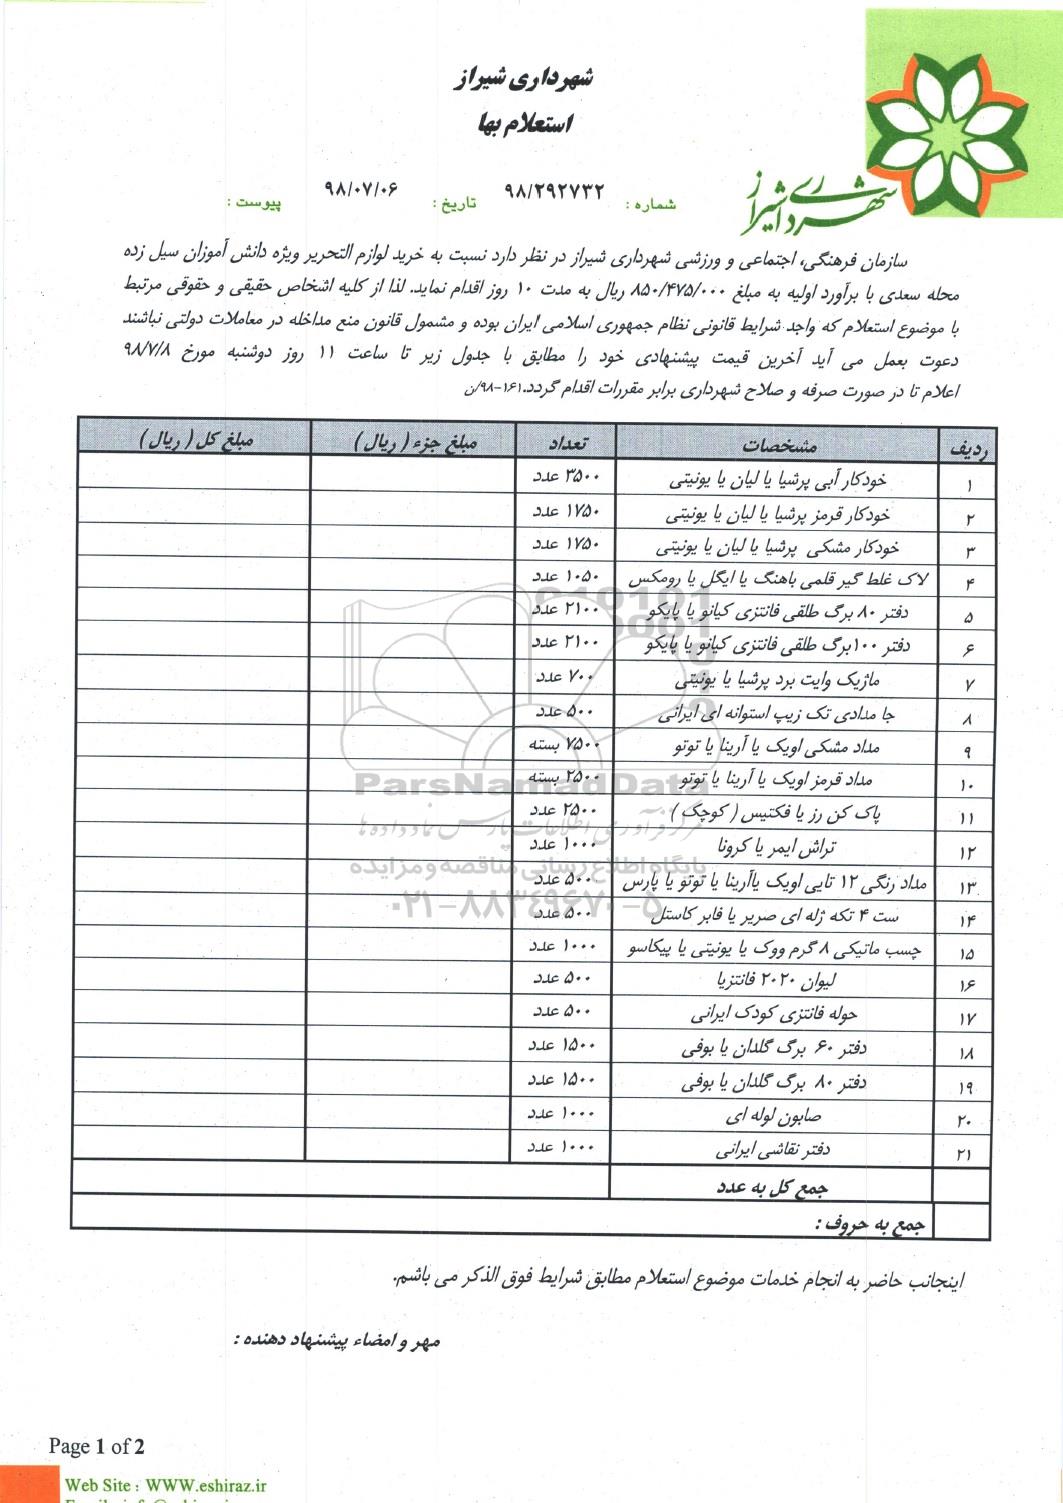 شهرداری شیراز
استعلام بها
شهرداری شیراز
شماره : ۹۸/۲۹۲۷۳۲ تاریخ : ۹۸/۰۷/۰۶ پیوست :
سازمان فرهنگی، اجتماعی و ورزشی شهرداری شیراز در نظر دارد نسبت به خرید لوازم التحریر ویژه دانش آموزان سیل زده
محله سعدی با برآورد اولیه به مبلغ ۸۵۰/۴۷۵/۰۰۰ ریال به مدت ۱۰ روز اقدام نماید. لذا از کلیه اشخاص حقیقی و حقوقی مرتبط
با موضوع استعلام که واجد شرایط قانونی نظام جمهوری اسلامی ایران بوده و مشمول قانون منع مداخله در معاملات دولتی نباشند
دعوت بعمل می آید آخرین قیمت پیشنهادی خود را مطابق با جدول زیر تا ساعت ۱۱ روز دوشنبه مورخ ۹۸/۷/۸
اعلام تا در صورت صرفه و صلاح شهرداری برابر مقررات اقدام گردد.۱۶۱-۹۸/ن
ردیف مشخصات تعداد مبلغ جزء ( ریال ) مبلغ کل ( ریال )
۱ خودکار آبی پرشیا یا لیان یا یونیتی ۳۵۰۰ عدد
۲ خودکار قرمز پرشیا یا لیان یا یونیتی ۱۷۵۰ عدد
۳ خودکار مشکی پرشیا یا لیان یا یونیتی ۱۷۵۰ عدد
۴ لاک غلط گیر قلمی باهنگ یا ایگل یا رومکس ۱۰۵۰ عدد
۵ دفتر ۸۰ برگ طلقی فانتزی کیانو یا پاپکو ۲۱۰۰ عدد
۶ دفتر ۱۰۰برگ طلقی فانتزی کیانو یا پاپکو ۲۱۰۰ عدد
۷ ماژیک وایت برد پرشیا یا یونیتی ۷۰۰ عدد
۸ جا مدادی تک زیپ استوانه ای ایرانی ۵۰۰ عدد
۹ مداد مشکی اویک یا آرینا یا توتو ۷۵۰۰ بسته
۱۰ مداد قرمز اویک یا آرینا یا توتو ۲۵۰۰ بسته
۱۱ پاک کن رز یا فکتیس ( کوچک ) ۲۵۰۰ عدد
۱۲ تراش ایمر یا کرونا ۱۰۰۰ عدد
۱۳ مداد رنگی ۱۲ تایی اویک یاآرینا یا توتو یا پارس ۵۰۰ عدد
۱۴ ست ۴ تکه ژله ای صریر یا فابر کاستل ۵۰۰ عدد
۱۵ چسب ماتیکی ۸ گرم ووک یا یونیتی یا پیکاسو ۱۰۰۰ عدد
۱۶ لیوان ۲۰۲۰ فانتزیا ۵۰۰ عدد
۱۷ حوله فانتزی کودک ایرانی ۵۰۰ عدد
۱۸ دفتر ۶۰ برگ گلدان یا بوفی ۱۵۰۰ عدد
۱۹ دفتر ۸۰ برگ گلدان یا بوفی ۱۵۰۰ عدد
۲۰ صابون لوله ای ۱۰۰۰ عدد
۲۱ دفتر نقاشی ایرانی ۱۰۰۰ عدد
جمع کل به عدد
جمع به حروف :
ParsNamadData
مرکز فرآوری اطلاعات پارس نماد داده ها
پایگاه اطلاع رسانی مناقصه و مزایده
۰۲۱-۸۸۳۴۹۶۷۰-۵
اینجانب حاضر به انجام خدمات موضوع استعلام مطابق شرایط فوق الذکر می باشم.
مهر و امضاء پیشنهاد دهنده :
Page 1 of 2
Web Site : WWW.eshiraz.ir